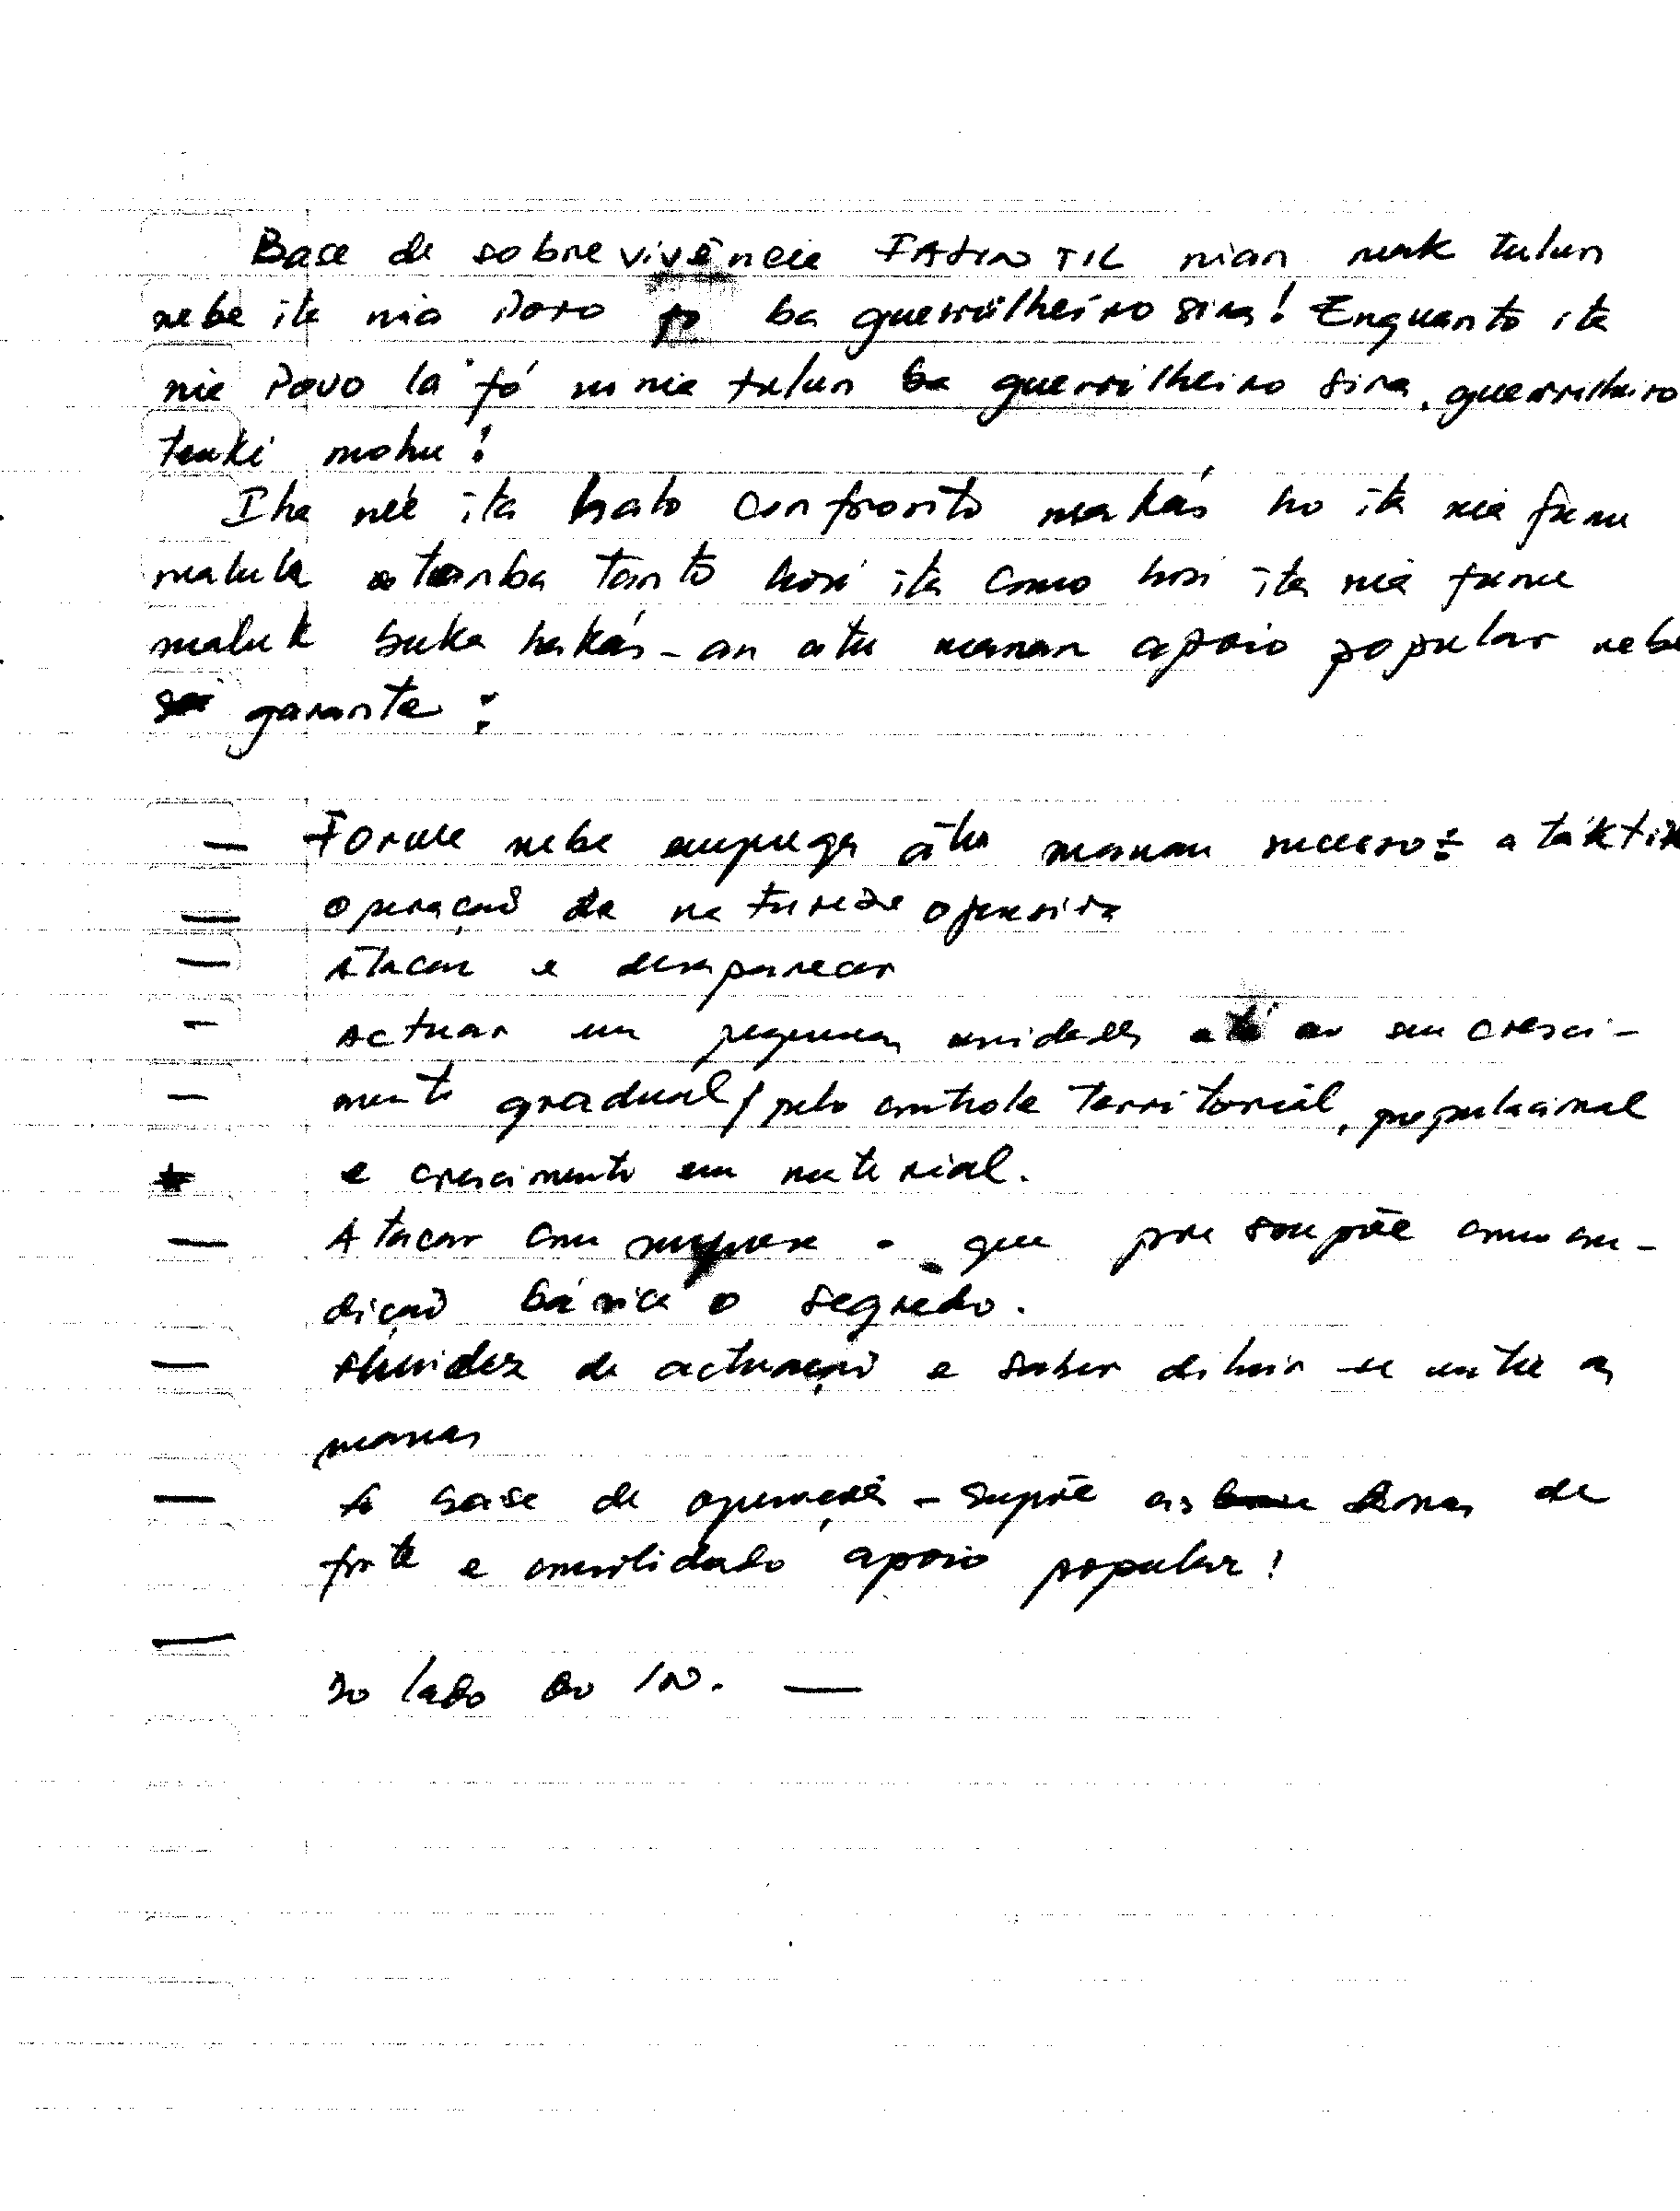 Base de sobrevivência FALINTIL nian mak tulun
nebe ita nia Povo fó ba guerrilheiro sira! Enquanto ita
nia Povo la fó ninia tulun ba guerrilheiro sira, guerrilheiro
tenki mohu!
Iha né'e ita halo confronto makás ho ita nia funu
maluk tamba tanto hosi ita como hosi ita nia funu
maluk buka hakás-an atu manan apoio popular nebe
garante:
— Forma nebe emprega atu manan sucesso: a táktik
— Operação de natureza ofensiva
— Atacar e desaparecer
- Actuar em pequenas unidades até ao seu cresci-
- mento gradual/pelo controle territorial, populacional
e crescimento em material.
— Atacar com surpresa - que pressupõe como con-
dição básica o segredo.
— fluidez de actuação e saber diluir-se entre as
massas
— base de operações - supõe as zonas de
forte e consolidado apoio popular!
—
Do lado do IN. —